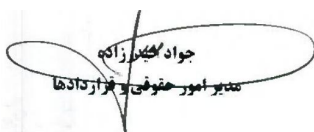 جواد حیدرزاده
مدیر امور حقوقی و قراردادها